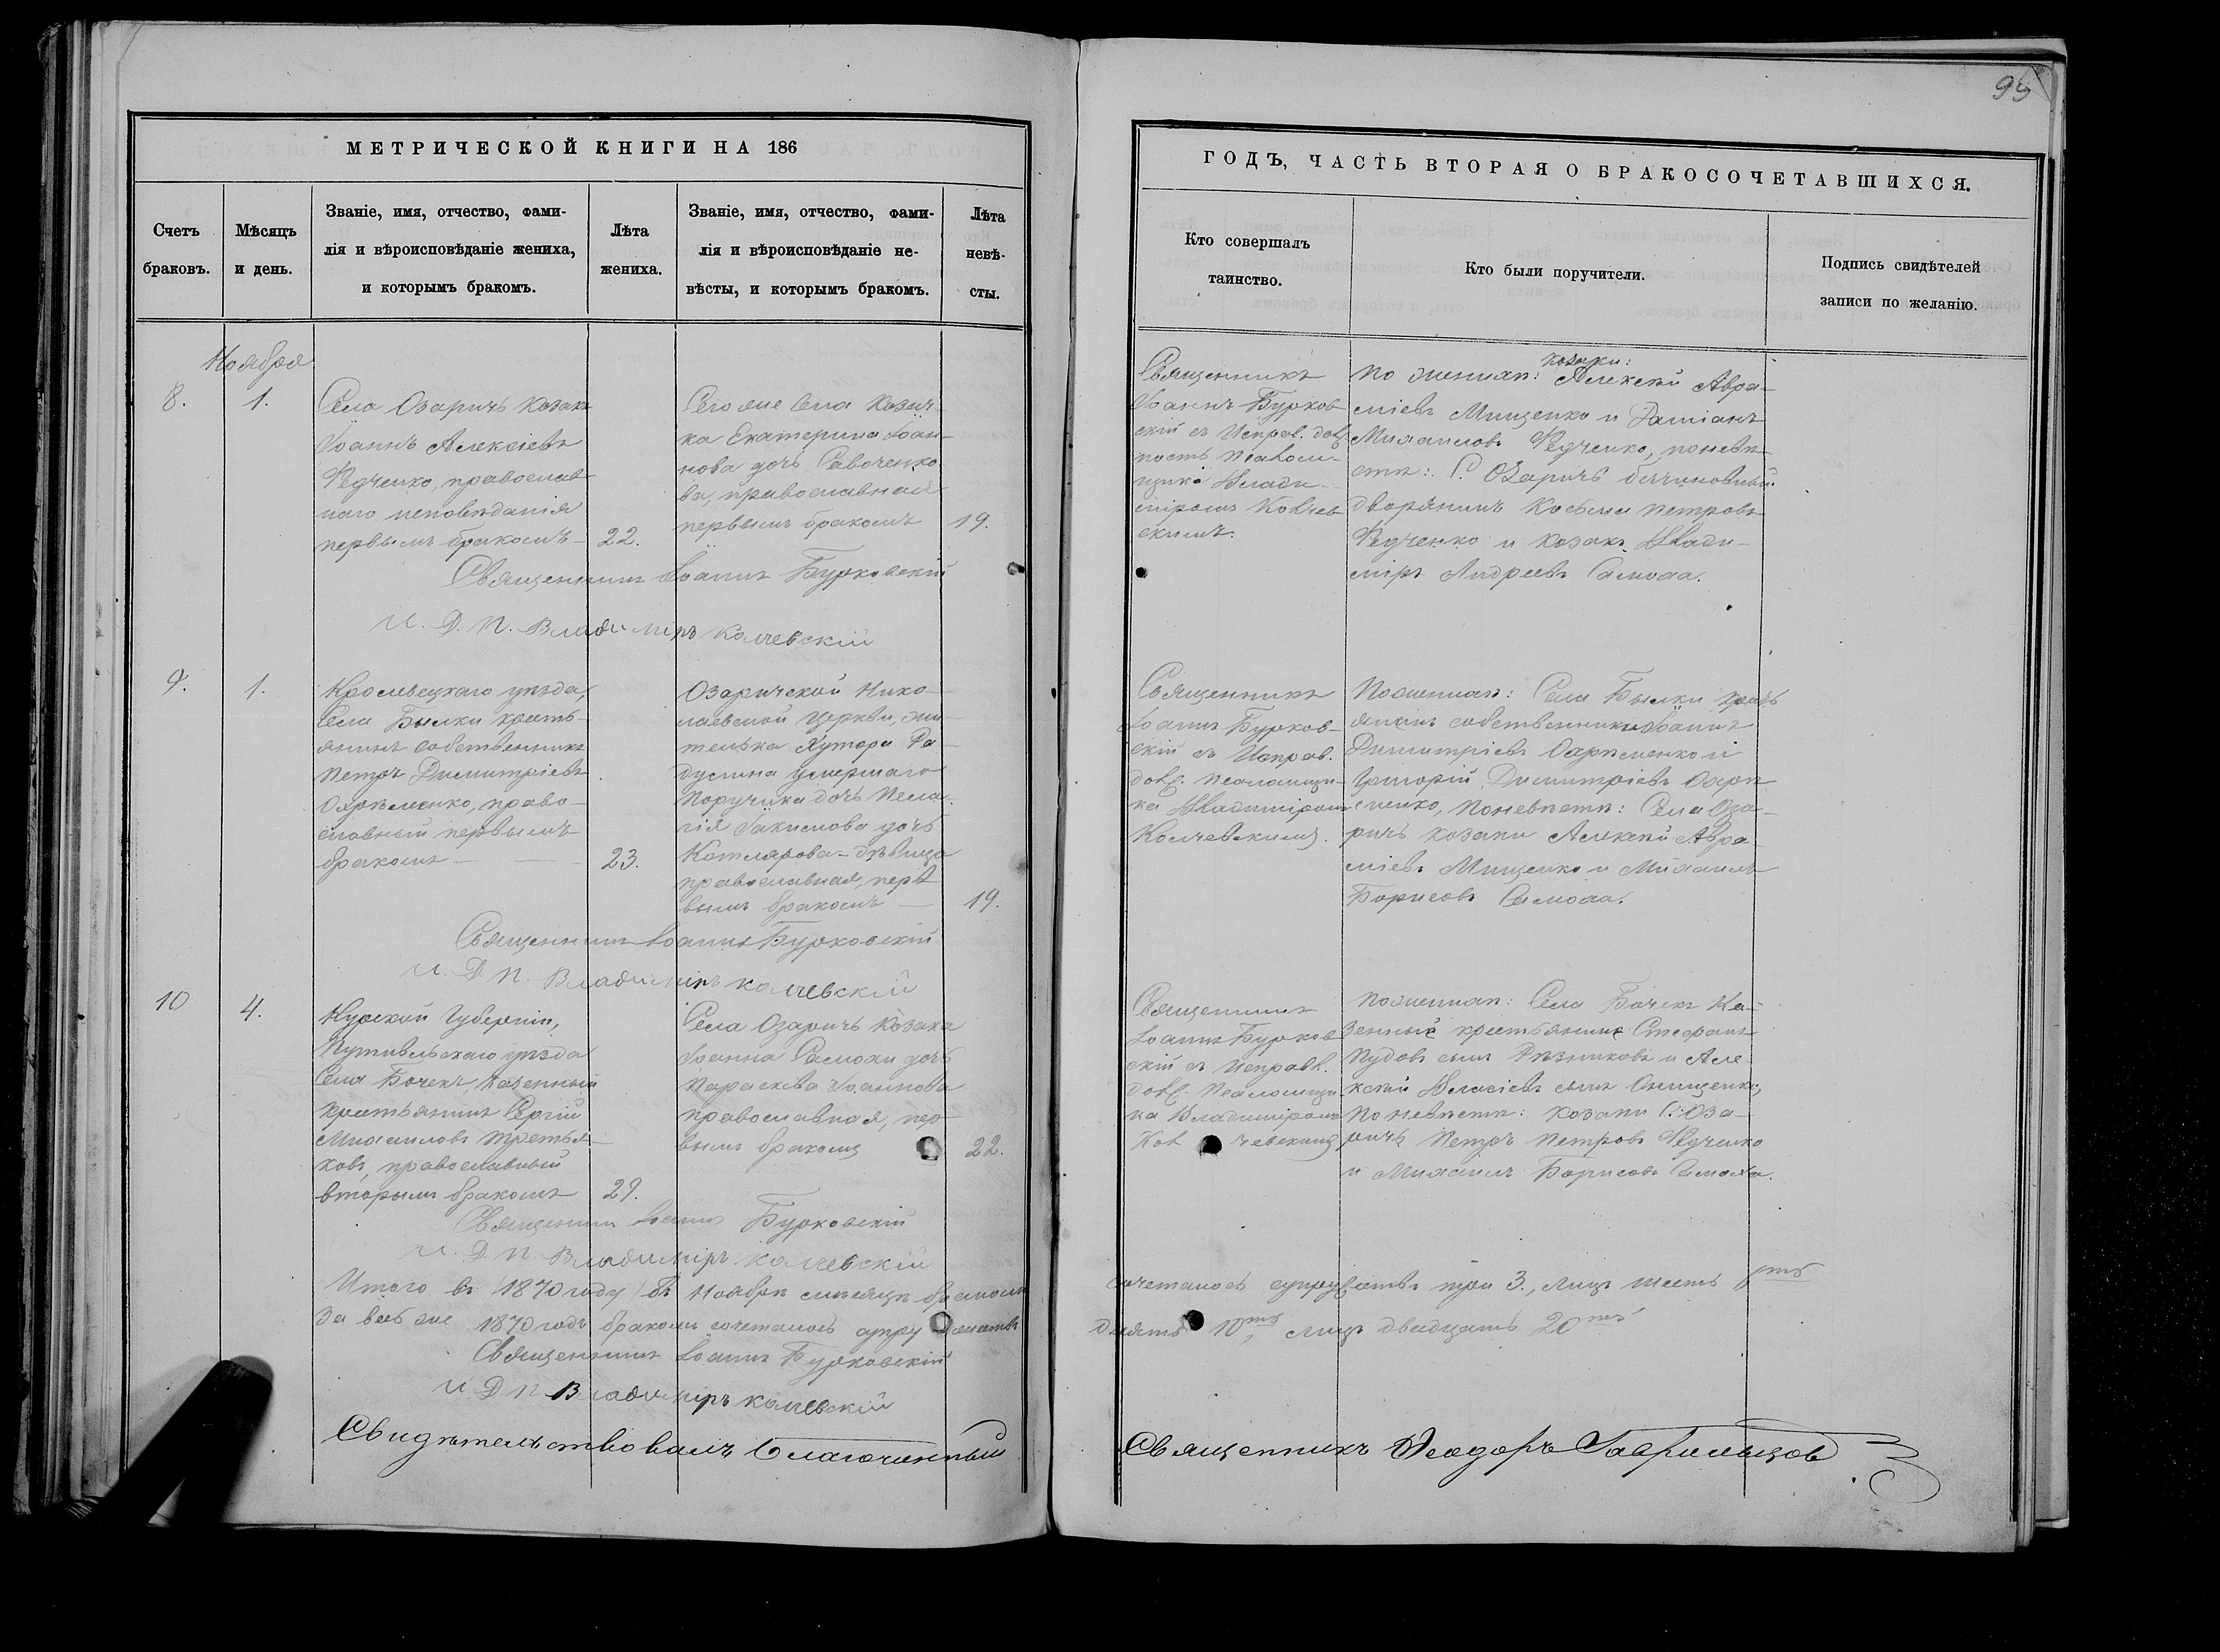 95
МЕТРИЧЕСКОЙ КНИГИ НА 186
Счетъ
браковъ.
Мѣсяцъ
и день.
Званіе, имя, отчество, фами-
лія и вѣроисповѣданіе жениха,
и которымъ бракомъ.
Лѣта
жениха.
Званіе, имя, отчество, фами-
лія и вѣроисповѣданіе не-
вѣсты, и которымъ бракомъ.
Лѣта
невѣ-
сты.
ГОДЪ, ЧАСТЬ ВТОРАЯ О БРАКОСОЧЕТАВШИХСЯ.
Кто совершалъ
таинство.
Кто были поручители.
Подпись свидѣтелей
записи по желанію.
Ноября
8.
1.
Села Озаричъ козакъ
Іоаннъ Алексіевъ
Федченко, православ
наго исповѣданія
первымъ бракомъ
22.
Сего же села козач-
ка Екатерина Іоан-
нова дочь Савоченко
ва, православная
первымъ бракомъ
19.
Священникъ
Іоаннъ Бурков
скій съ Исправ. дол
ность Псалом-
щика Влади-
міромъ Колчев
скимъ.
козаки:
По жених: Алексѣй Авра-
міевъ Мищенко и Даміанъ
Михаиловъ Федченко, по невѣ
стѣ: С. Озаричъ безчиновный
дворянинъ Косьма Петровъ
Федченко и козакъ Влади-
міръ Андреевъ Самоха.
Священникъ Іоаннъ Бурковскій
И. Д. П. Владиміръ Колчевскій
9.
1.
Кролевецкаго уѣзда,
Села Былки кресть-
янинъ собственникъ
Петръ Димитріевъ
Охрѣменко, право-
славный первымъ
бракомъ
23.
Озаричской Нико-
лаевской церкви, жи-
телька Хутора Ра-
дулина умершаго
Поручика дочь Пела-
гія Іакимова дочь
Котлярова - дѣвица
православная, перв
вымъ бракомъ
19.
Священникъ
Іоаннъ Бурков-
скій съ Исправ.
дол. Псаломщи-
ка Владиміромъ
Колчевскимъ.
По жених: Села Былки крест
янинъ собственникъ Іоаннъ
Димитріевъ Охрѣменко и
Григорій Димитріевъ Охрѣ
менко, по невѣстѣ: Села Оза-
ричъ козаки Алексѣй Авра-
міевъ Мищенко и Михаилъ
Борисовъ Самоха.
Священникъ Іоаннъ Бурковскій
И. Д. П. Владиміръ Колчевскій
10
4.
Курской Губерніи,
Путивльскаго уѣзда
Села Бочекъ, казенный
крестьянинъ Сергій
Михаиловъ Третья-
ковъ, православный
вторымъ бракомъ
29.
Села Озаричъ козака
Іоанна Самохи дочь
Параскева Іоаннова
православная, пер
вымъ бракомъ
22.
Священникъ
Іоаннъ Бурков
скій съ Исправл.
дол. Псаломщи
ка Владиміромъ
Кол чевскимъ
По жених: Села Бочекъ Ка-
зенный крестьянинъ Стефанъ
Пудовъ сынъ Рѣзниковъ и Але
ксѣй Власіевъ сынъ Онищенко,
по невѣстѣ: козаки С. Оза-
ричъ Петръ Петровъ Федченко
и Михаилъ Борисовъ Самоха.
Священникъ Іоаннъ Бурковскій
И. Д. П. Владиміръ Колчевскій
Итого въ 1870 году въ Ноябрѣ мѣсяцѣ бракомъ сочеталось супружествъ три 3., лицъ шесть 6ть
За весь же 1870 годъ бракомъ сочеталось супружествъ десять 10ть, лицъ двадцать 20ть
Священникъ Іоаннъ Бурковскій
И. Д. П. Владиміръ Колчевскій
Свидѣтельствовалъ Благочинный Священникъ Ѳеодоръ Гаврильцов